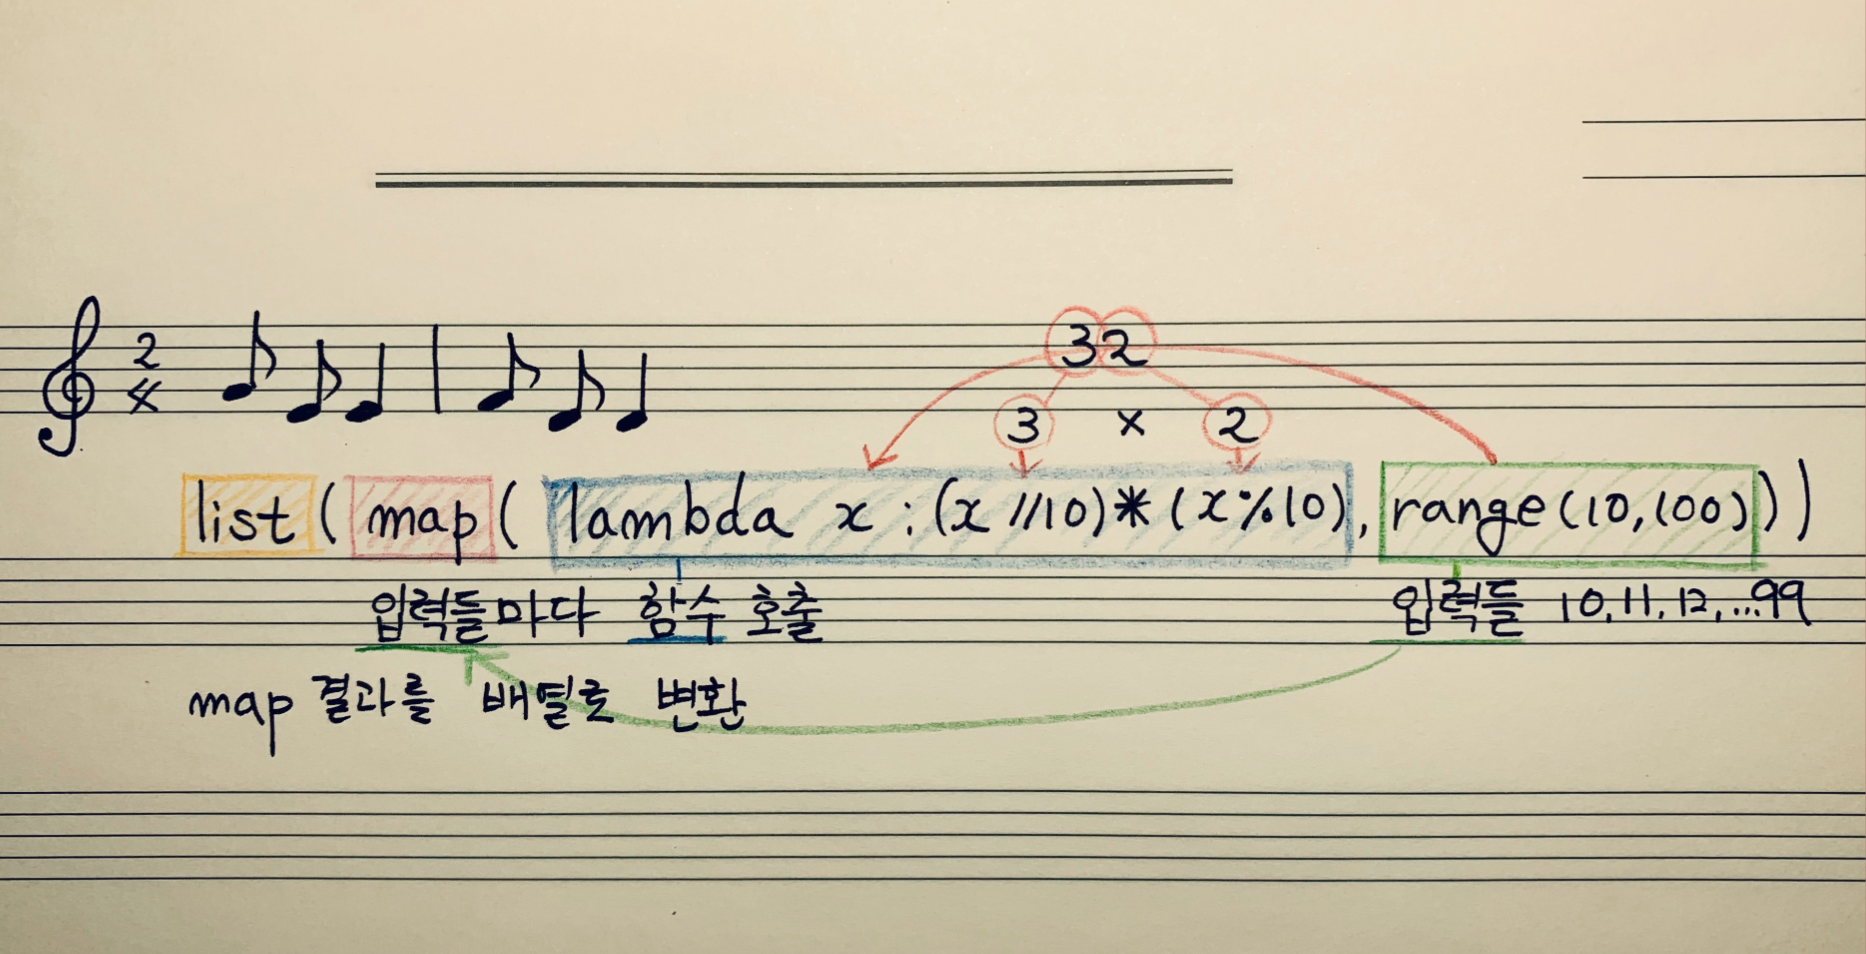 2
4
32
3 × 2
list ( map ( lambda x : (x //10)*(x%10), range(10,100)))
입력들마다 함수 호출
입력들 10,11,12,...99
map 결과를 배열로 변환